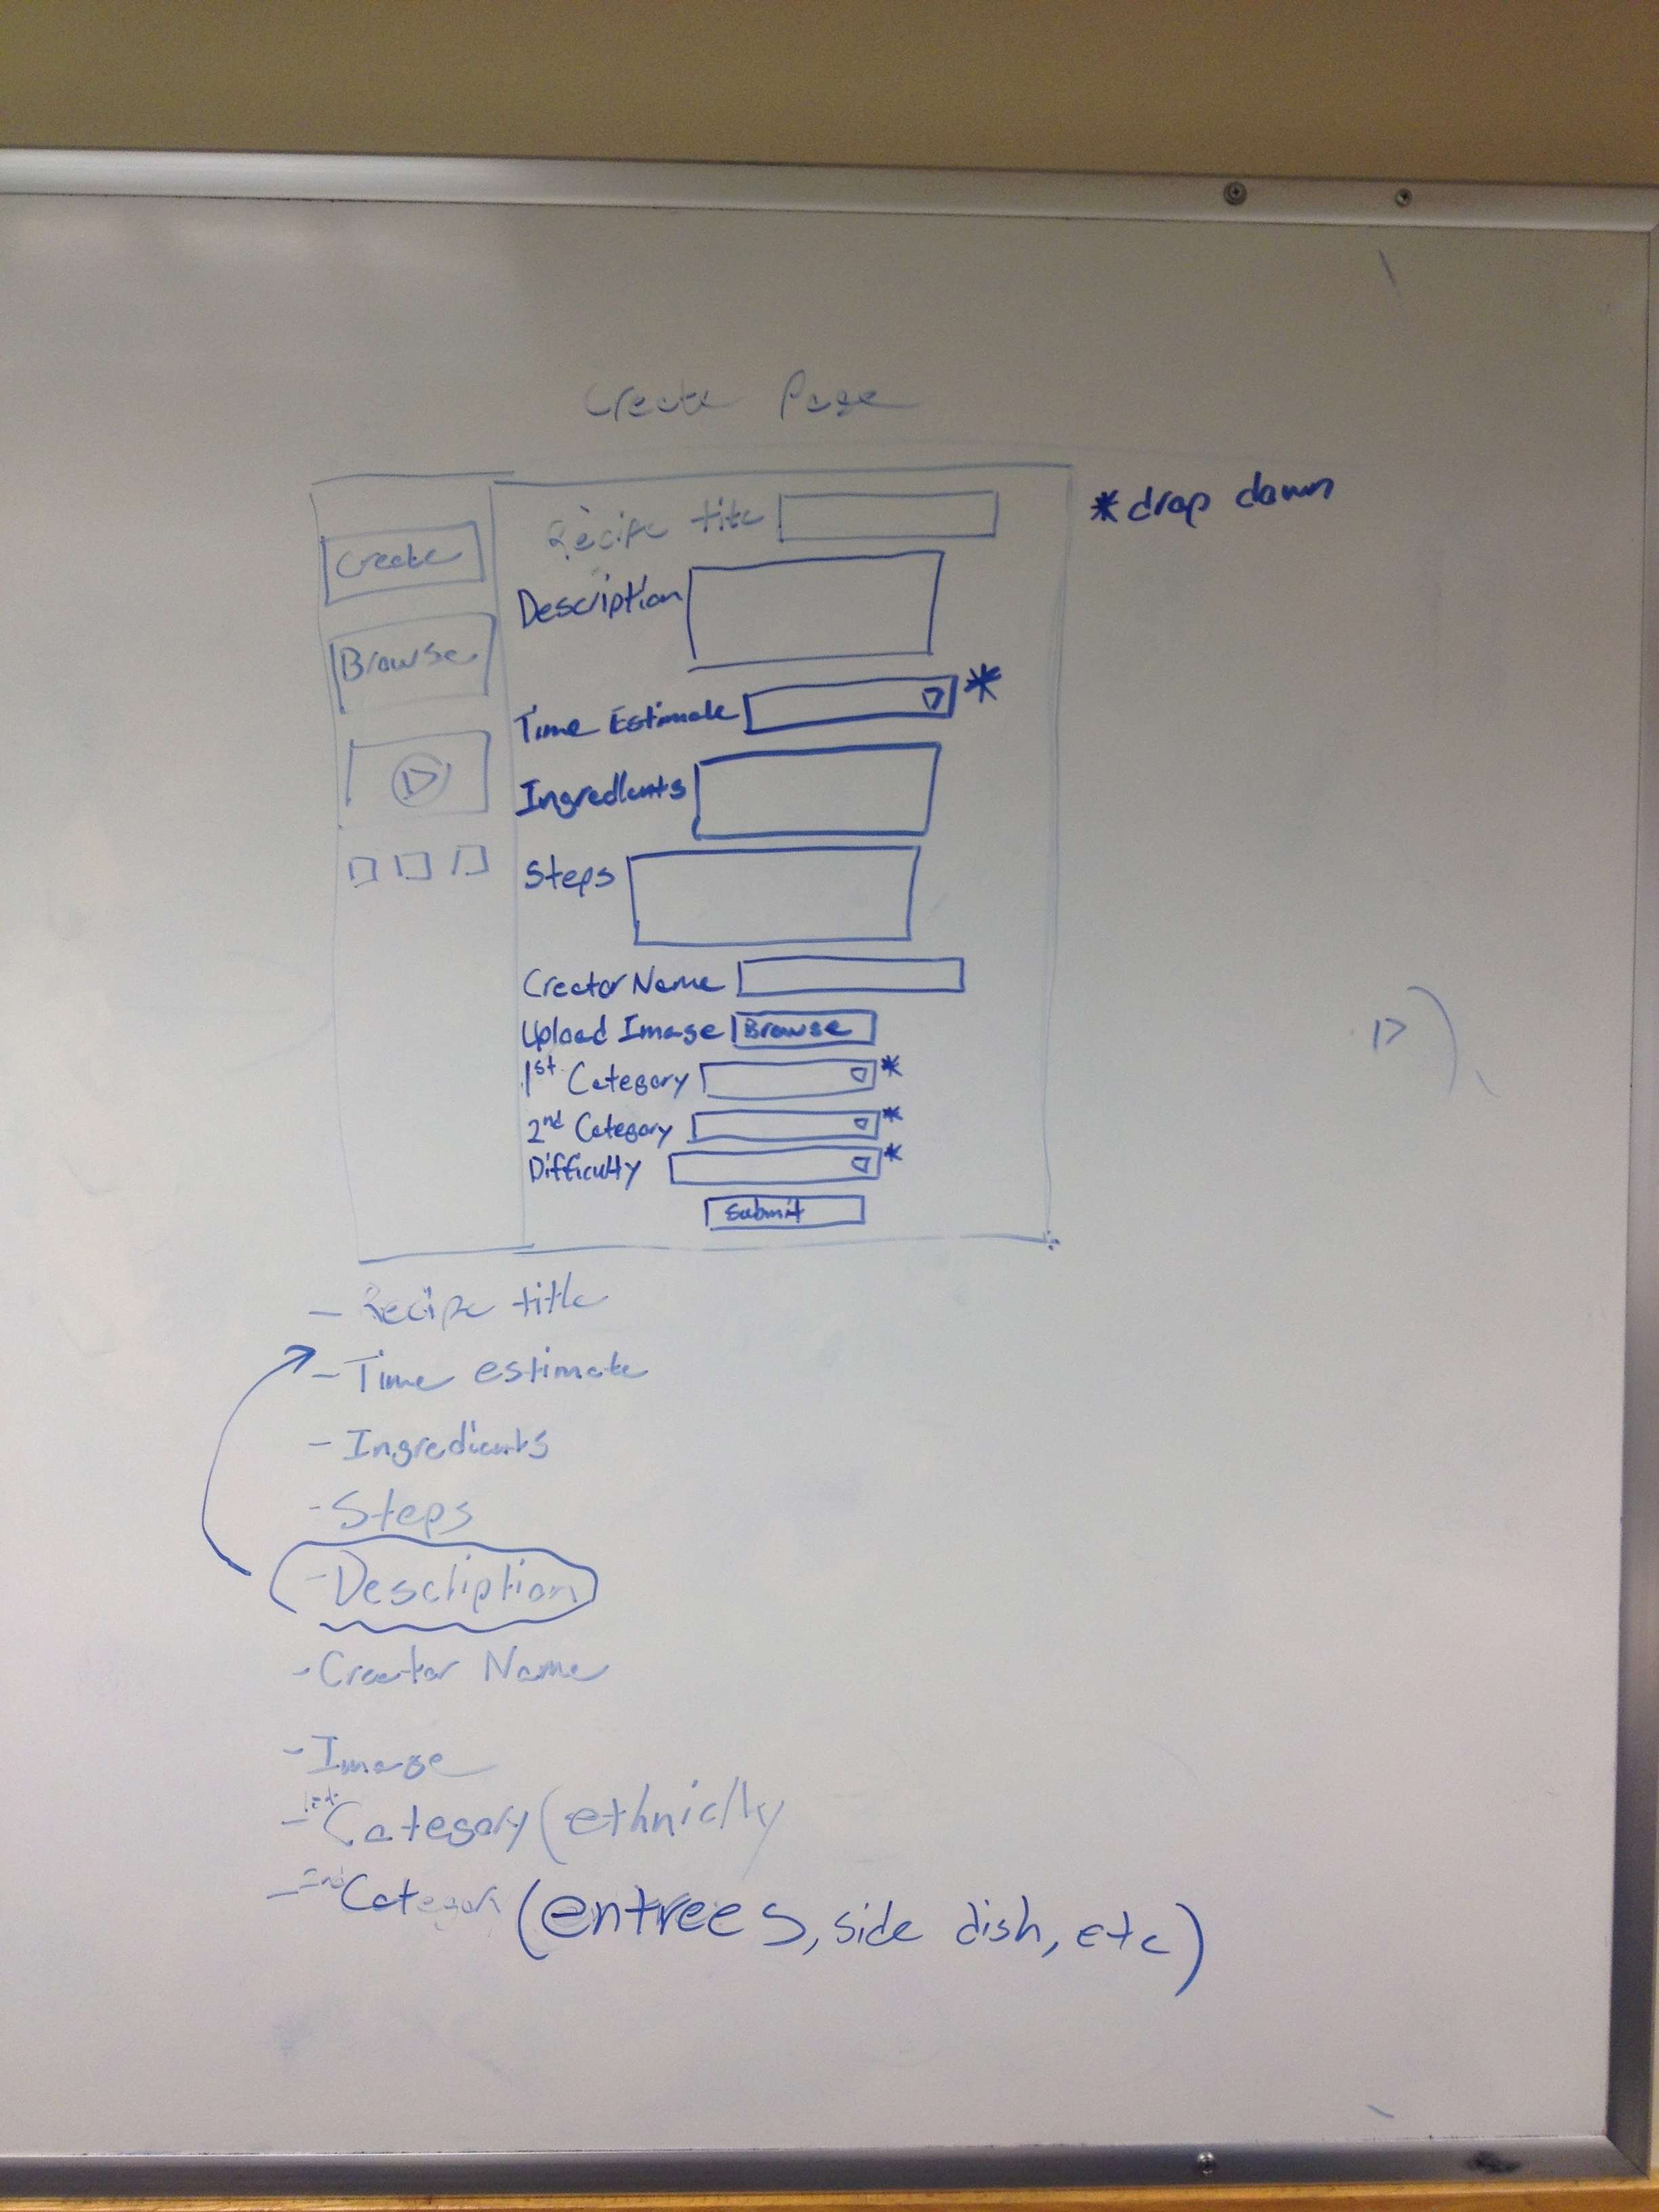 Create Page
* drop down
Create
Browse
Recipe title
Description
Time Estimate *
Ingredients
Steps
Creator Name
Upload Image Browse
1st Category *
2nd Category *
Difficulty *
Submit
- Recipe title
- Time estimate
- Ingredients
- Steps
- Description
- Creator Name
- Image
- 1st Category (ethnicity
- 2nd Category (entrees, side dish, etc)